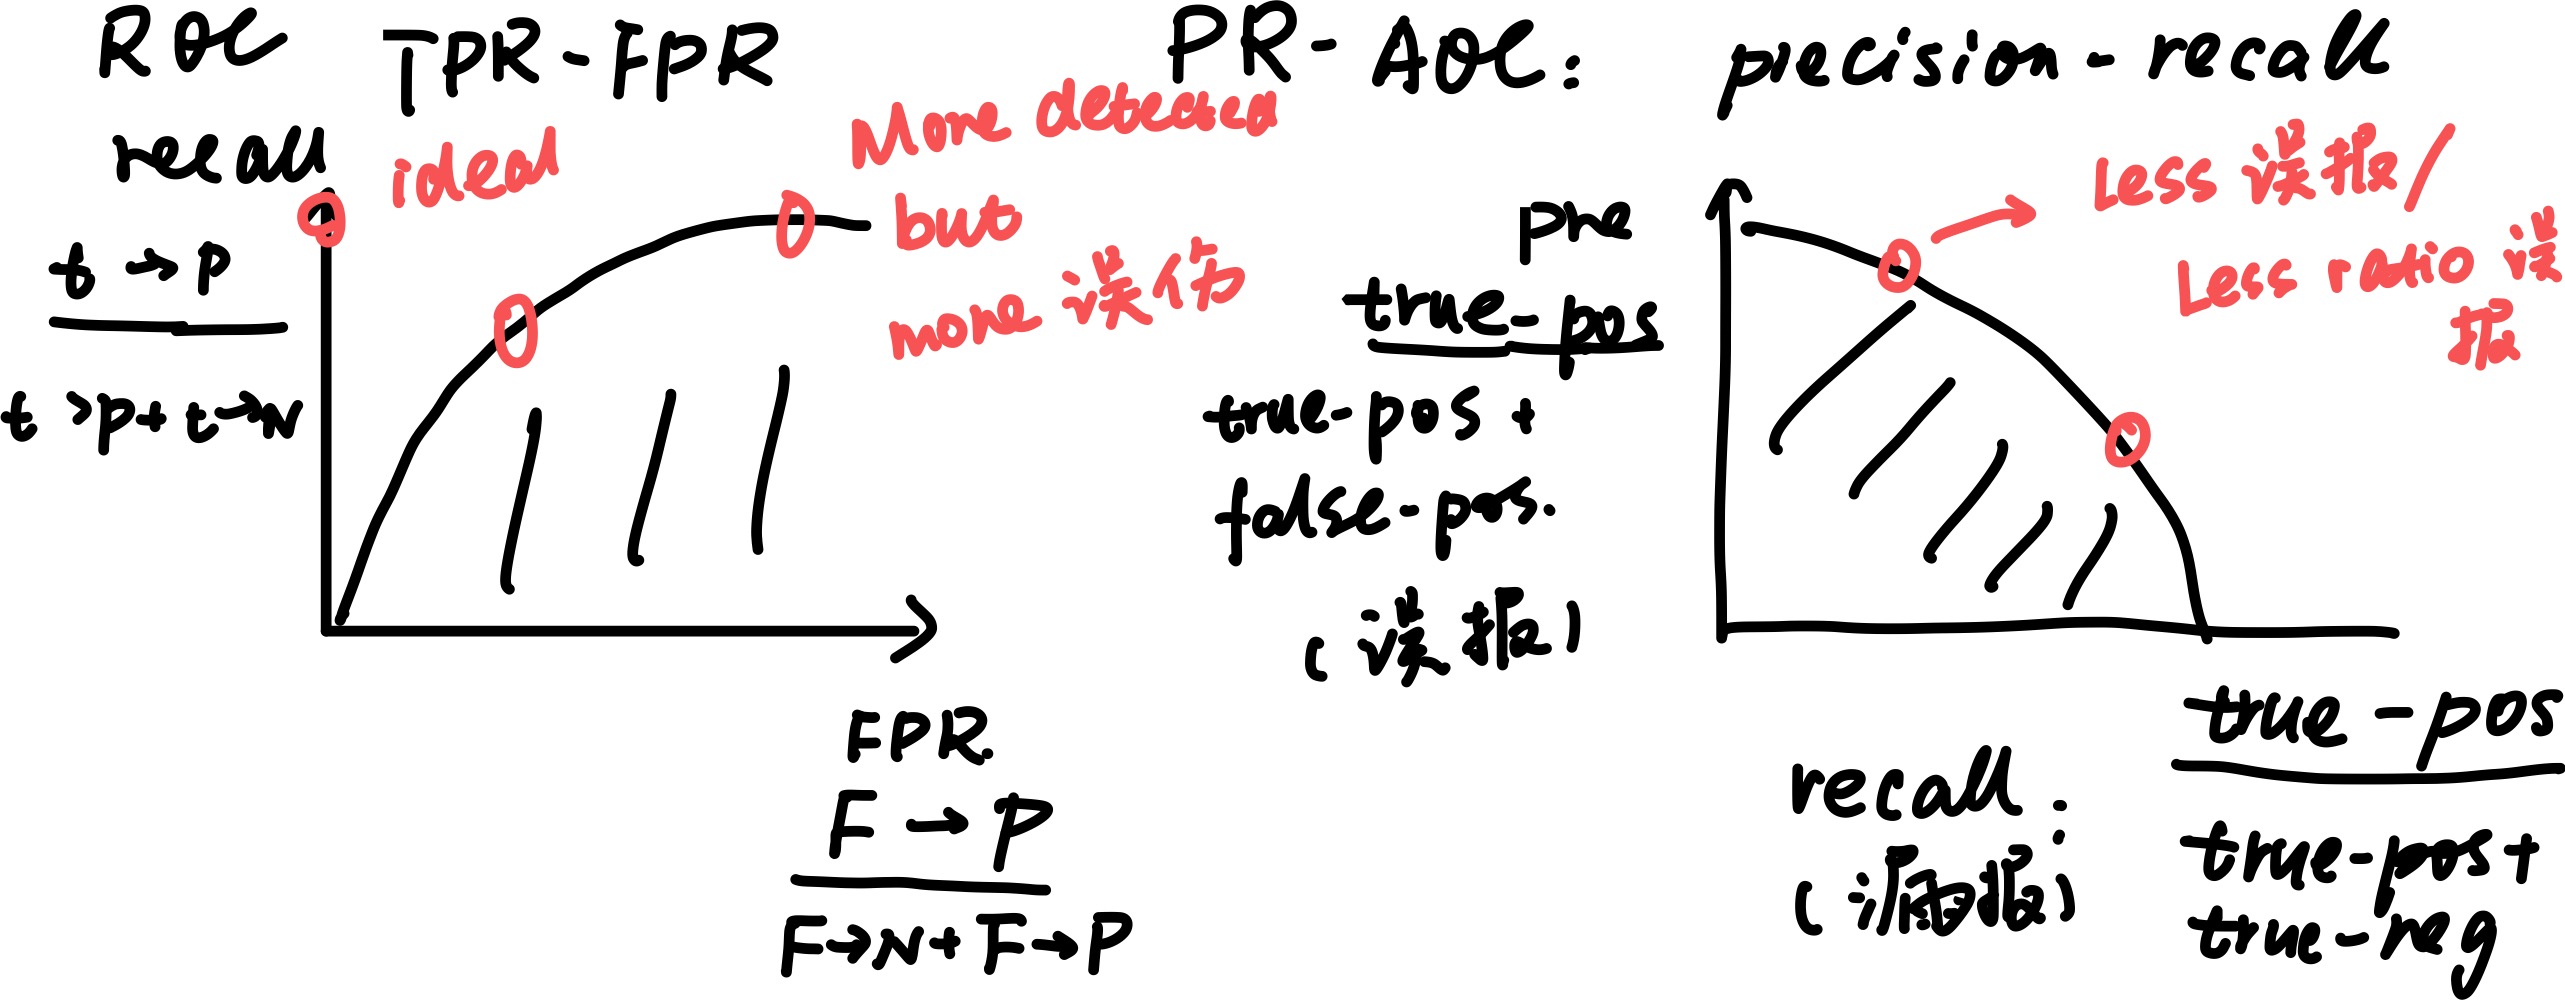 ROC TPR-FPR
recall
ideal
t → p
t → p + t → N
More detected
but
more 误伤
FPR
F → P
F → N + F → P
PR-AOC: precision-recall
pre
true-pos
true-pos +
false-pos.
(误报)
Less 误报/
Less ratio 误
报
recall:
(漏报)
true-pos
true-pos +
true-neg